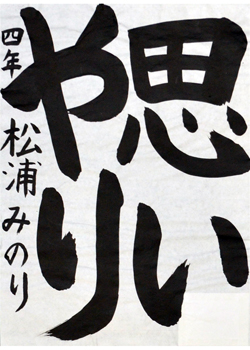 思い
やり
四年 松浦みのり